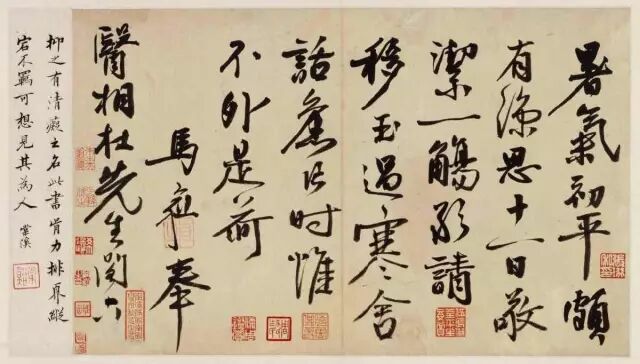 暑氣初平頗
有涼思十一日敬
潔一觴請
移玉過寒舍
話舊片时惟
不外是荷
馬愈奉
醫相杜先生閣下
抑之有清癡之名此書骨力排奡縱
宕不羈可想見其為人